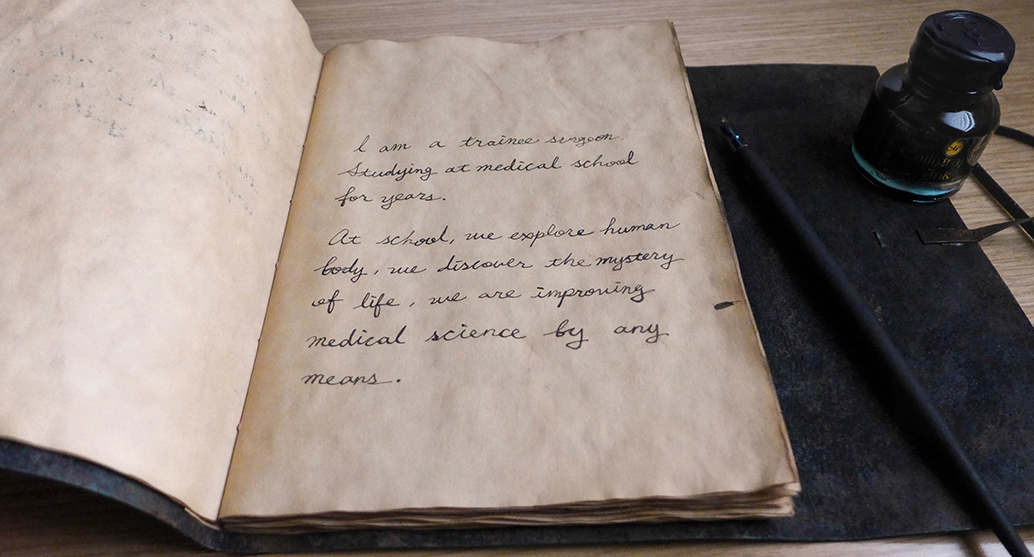 I am a trainee surgeon
Studying at medical school
for years.
At school, we explore human
body, we discover the mystery
of life, we are improving
medical science by any
means.
Ink